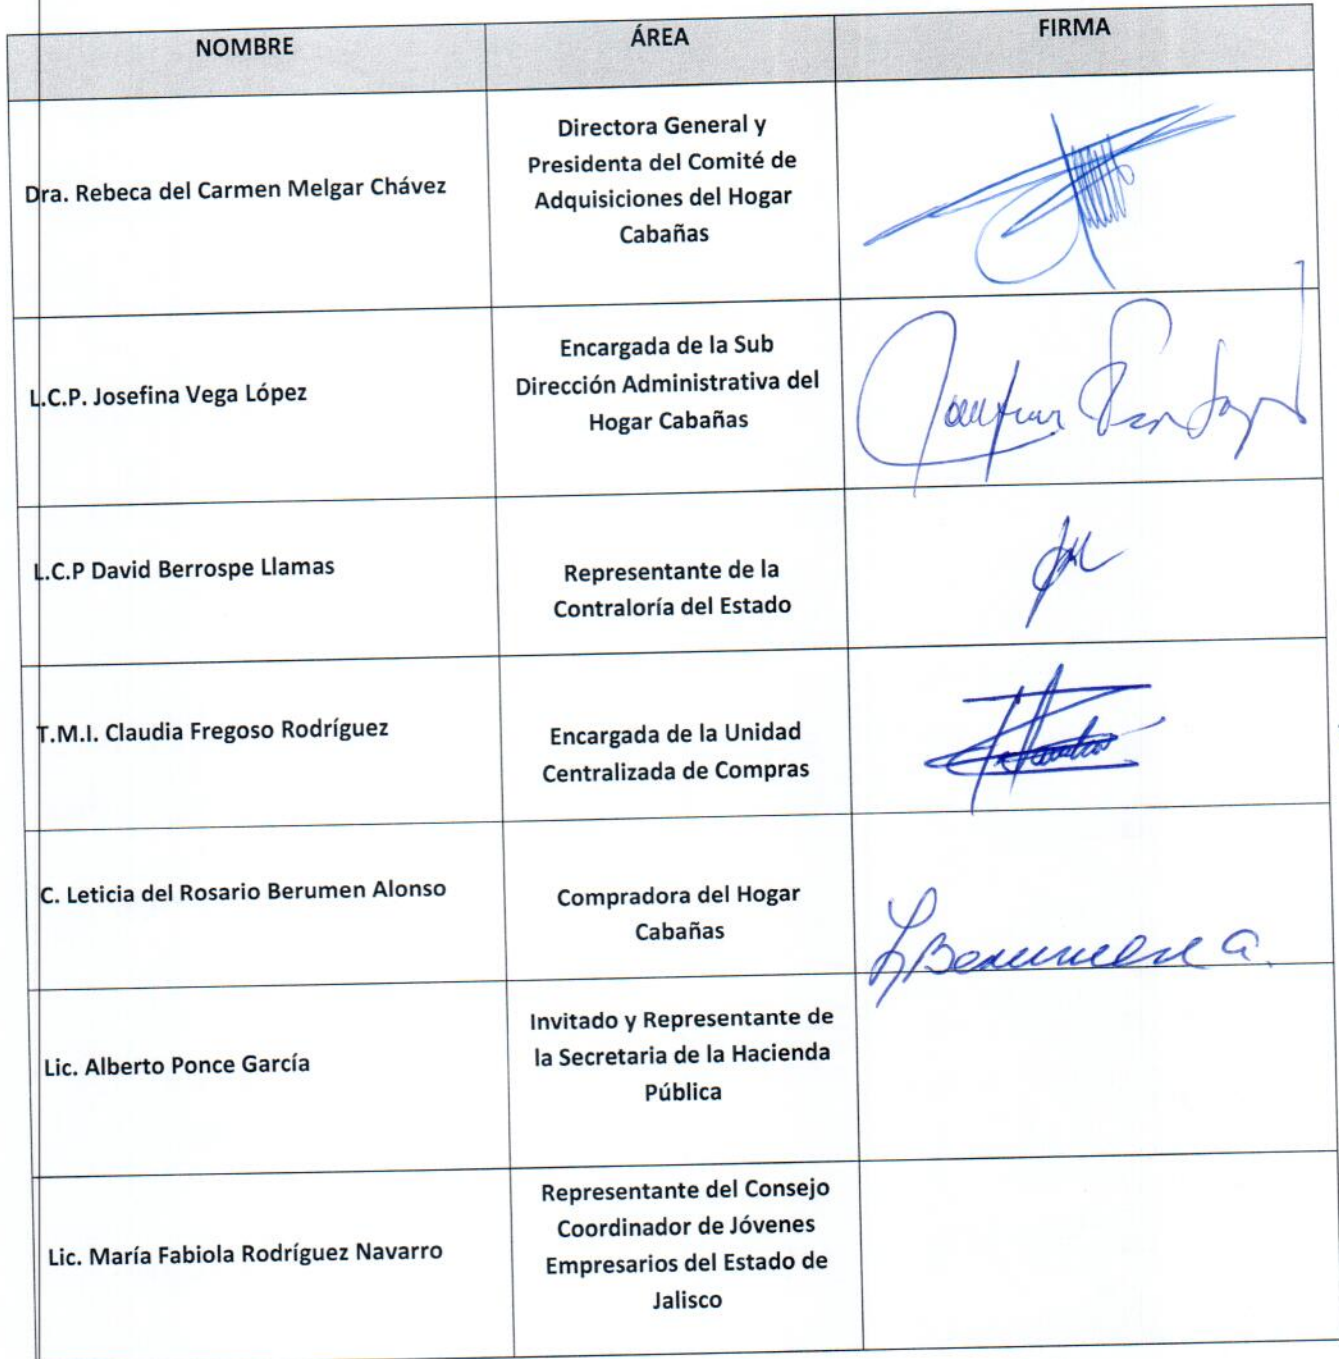 NOMBRE
ÁREA
FIRMA
Dra. Rebeca del Carmen Melgar Chávez
Directora General y
Presidenta del Comité de
Adquisiciones del Hogar
Cabañas
L.C.P. Josefina Vega López
Encargada de la Sub
Dirección Administrativa del
Hogar Cabañas
L.C.P David Berrospe Llamas
Representante de la
Contraloría del Estado
T.M.I. Claudia Fregoso Rodríguez
Encargada de la Unidad
Centralizada de Compras
C. Leticia del Rosario Berumen Alonso
Compradora del Hogar
Cabañas
LBerumen a.
Lic. Alberto Ponce García
Invitado y Representante de
la Secretaria de la Hacienda
Pública
Lic. María Fabiola Rodríguez Navarro
Representante del Consejo
Coordinador de Jóvenes
Empresarios del Estado de
Jalisco